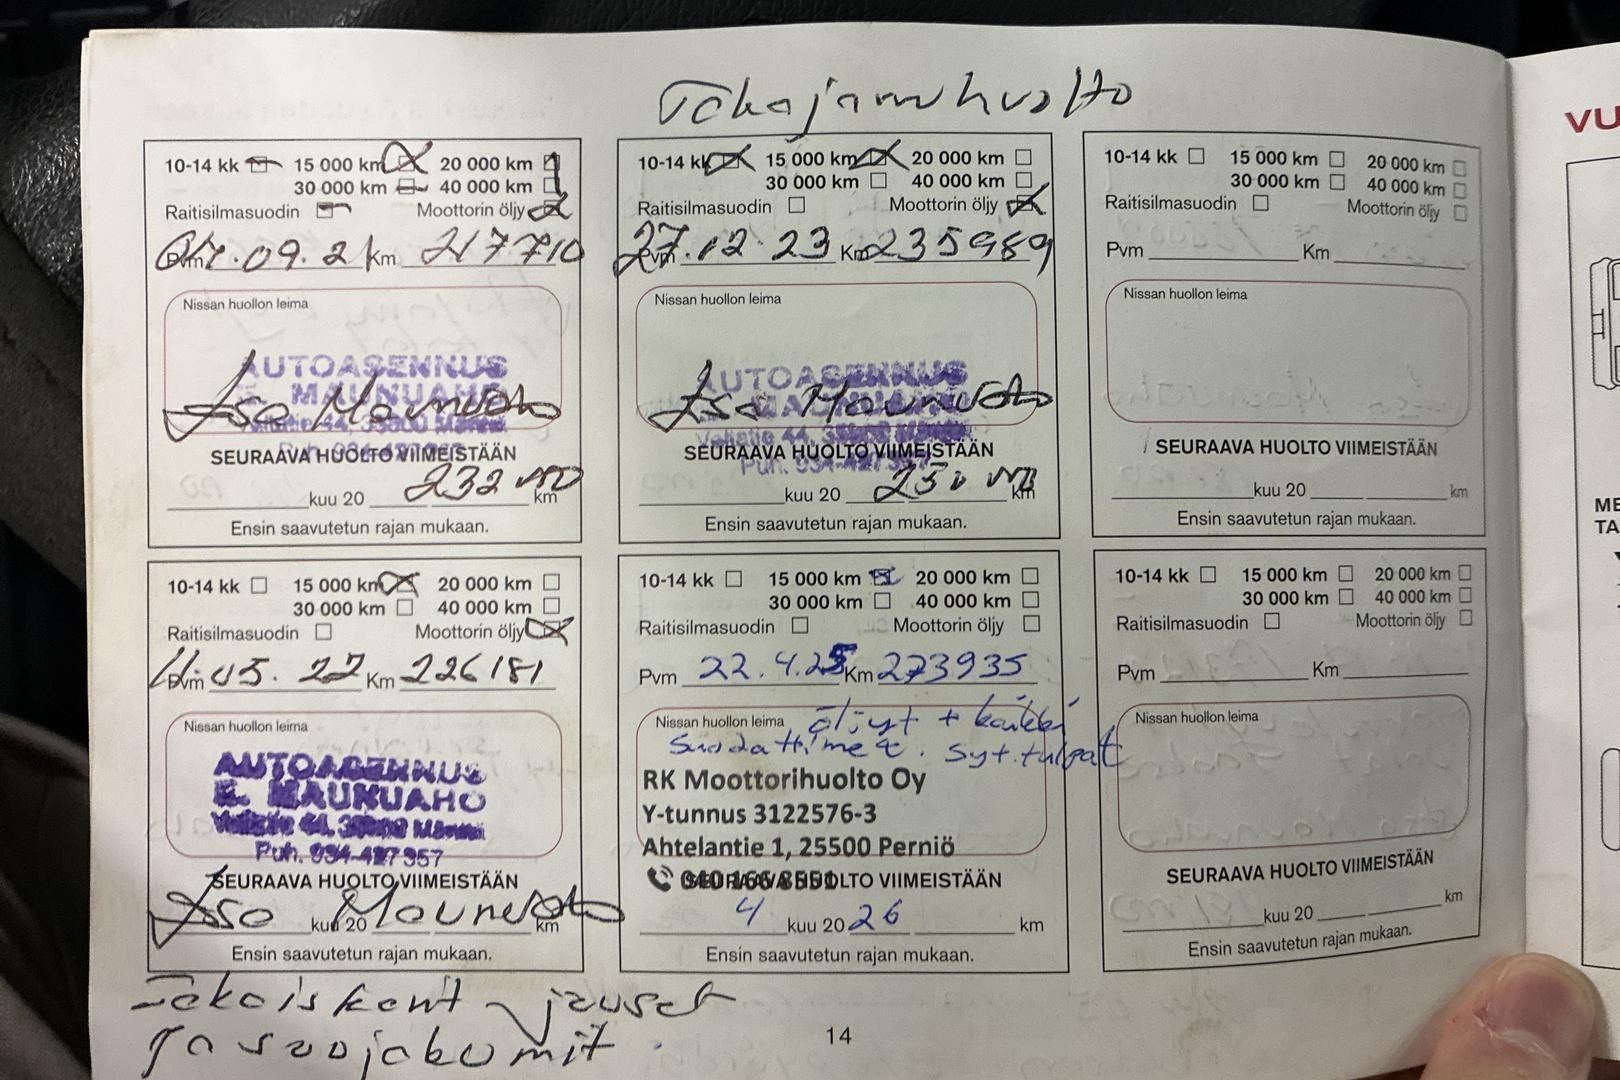 Takajarruhuolto
10-14 kk 15 000 km 20 000 km
30 000 km 40 000 km
Raitisilmasuodin Moottorin öljy
.09.2 Km 217710
Nissan huollon leima
AUTOASENNUS
E. MAUNUAHO
Esa Maunuaho
SEURAAVA HUOLTO VIIMEISTÄÄN
kuu 20 232 km
Ensin saavutetun rajan mukaan.
10-14 kk 15 000 km 20 000 km
30 000 km 40 000 km
Raitisilmasuodin Moottorin öljy
27.12.23 Km 235989
Nissan huollon leima
AUTOASENNUS
MAUNUAHO
Esa Maunuaho
SEURAAVA HUOLTO VIIMEISTÄÄN
kuu 20 km
Ensin saavutetun rajan mukaan.
10-14 kk 15 000 km 20 000 km
30 000 km 40 000 km
Raitisilmasuodin Moottorin öljy
Pvm Km
Nissan huollon leima
SEURAAVA HUOLTO VIIMEISTÄÄN
kuu 20 km
Ensin saavutetun rajan mukaan.
10-14 kk 15 000 km 20 000 km
30 000 km 40 000 km
Raitisilmasuodin Moottorin öljy
Pvm 05.22 Km 226181
Nissan huollon leima
AUTOASENNUS
E. MAUNUAHO
Puh. 934-427357
SEURAAVA HUOLTO VIIMEISTÄÄN
Esa Maunuaho
kuu 20 km
Ensin saavutetun rajan mukaan.
10-14 kk 15 000 km 20 000 km
30 000 km 40 000 km
Raitisilmasuodin Moottorin öljy
Pvm 22.4.25 Km 273935
Nissan huollon leima öljyt + kaikki
suodattimet. syt.tulpat
RK Moottorihuolto Oy
Y-tunnus 3122576-3
Ahtelantie 1, 25500 Perniö
SEURAAVA HUOLTO VIIMEISTÄÄN
4 kuu 20 26 km
Ensin saavutetun rajan mukaan.
10-14 kk 15 000 km 20 000 km
30 000 km 40 000 km
Raitisilmasuodin Moottorin öljy
Pvm Km
Nissan huollon leima
SEURAAVA HUOLTO VIIMEISTÄÄN
kuu 20 km
Ensin saavutetun rajan mukaan.
Takaiskent jouset
ja suojakumit.
14
VU
ME
TA